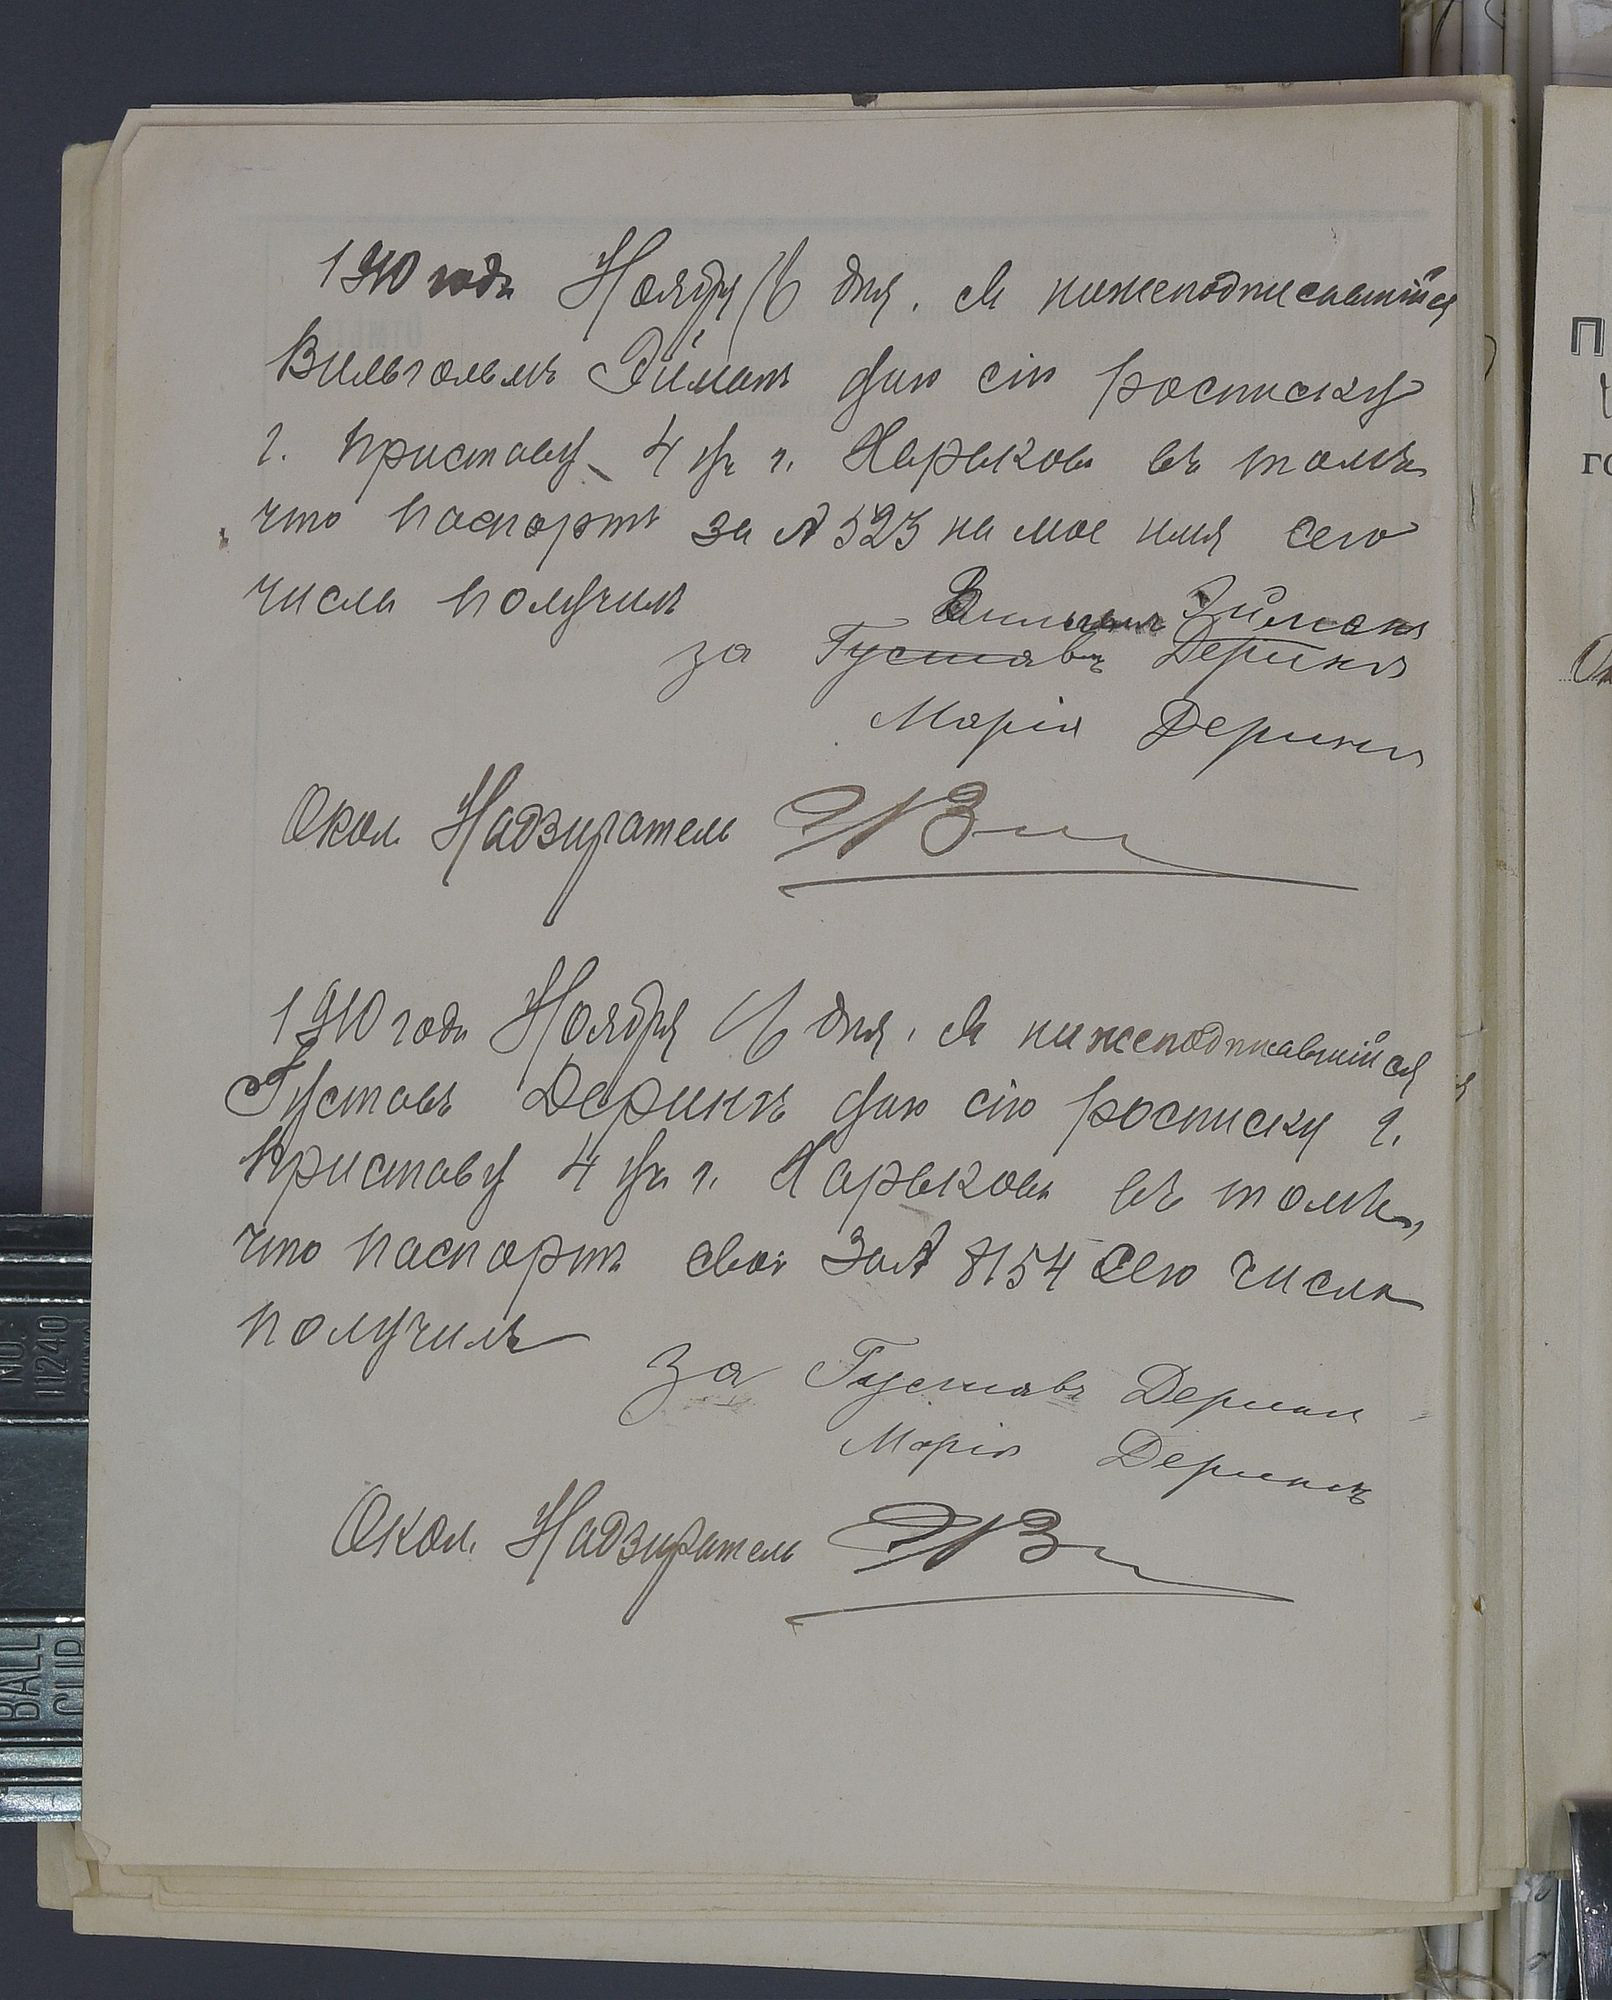 1910 года Ноября 16 дня. Я нижеподписавшійся
Вильгельмъ Эйманъ даю сію росписку
г. Приставу 4 уч. г. Харькова въ томъ
что паспортъ за № 523 на мое имя сего
числа получилъ
Вильгельмъ Эйманъ
за Густавъ Деринкъ
Марія Деринкъ
Окол. Надзиратель
1910 года Ноября 16 дня. Я нижеподписавшійся
Густавъ Деринкъ даю сію росписку г.
Приставу 4 уч. г. Харькова въ томъ,
что паспортъ свой за № 8154 сего числа
получилъ
за Густавъ Деринкъ
Марія Деринкъ
Окол. Надзиратель
NO.
11240
BALL
CLIP
П
го